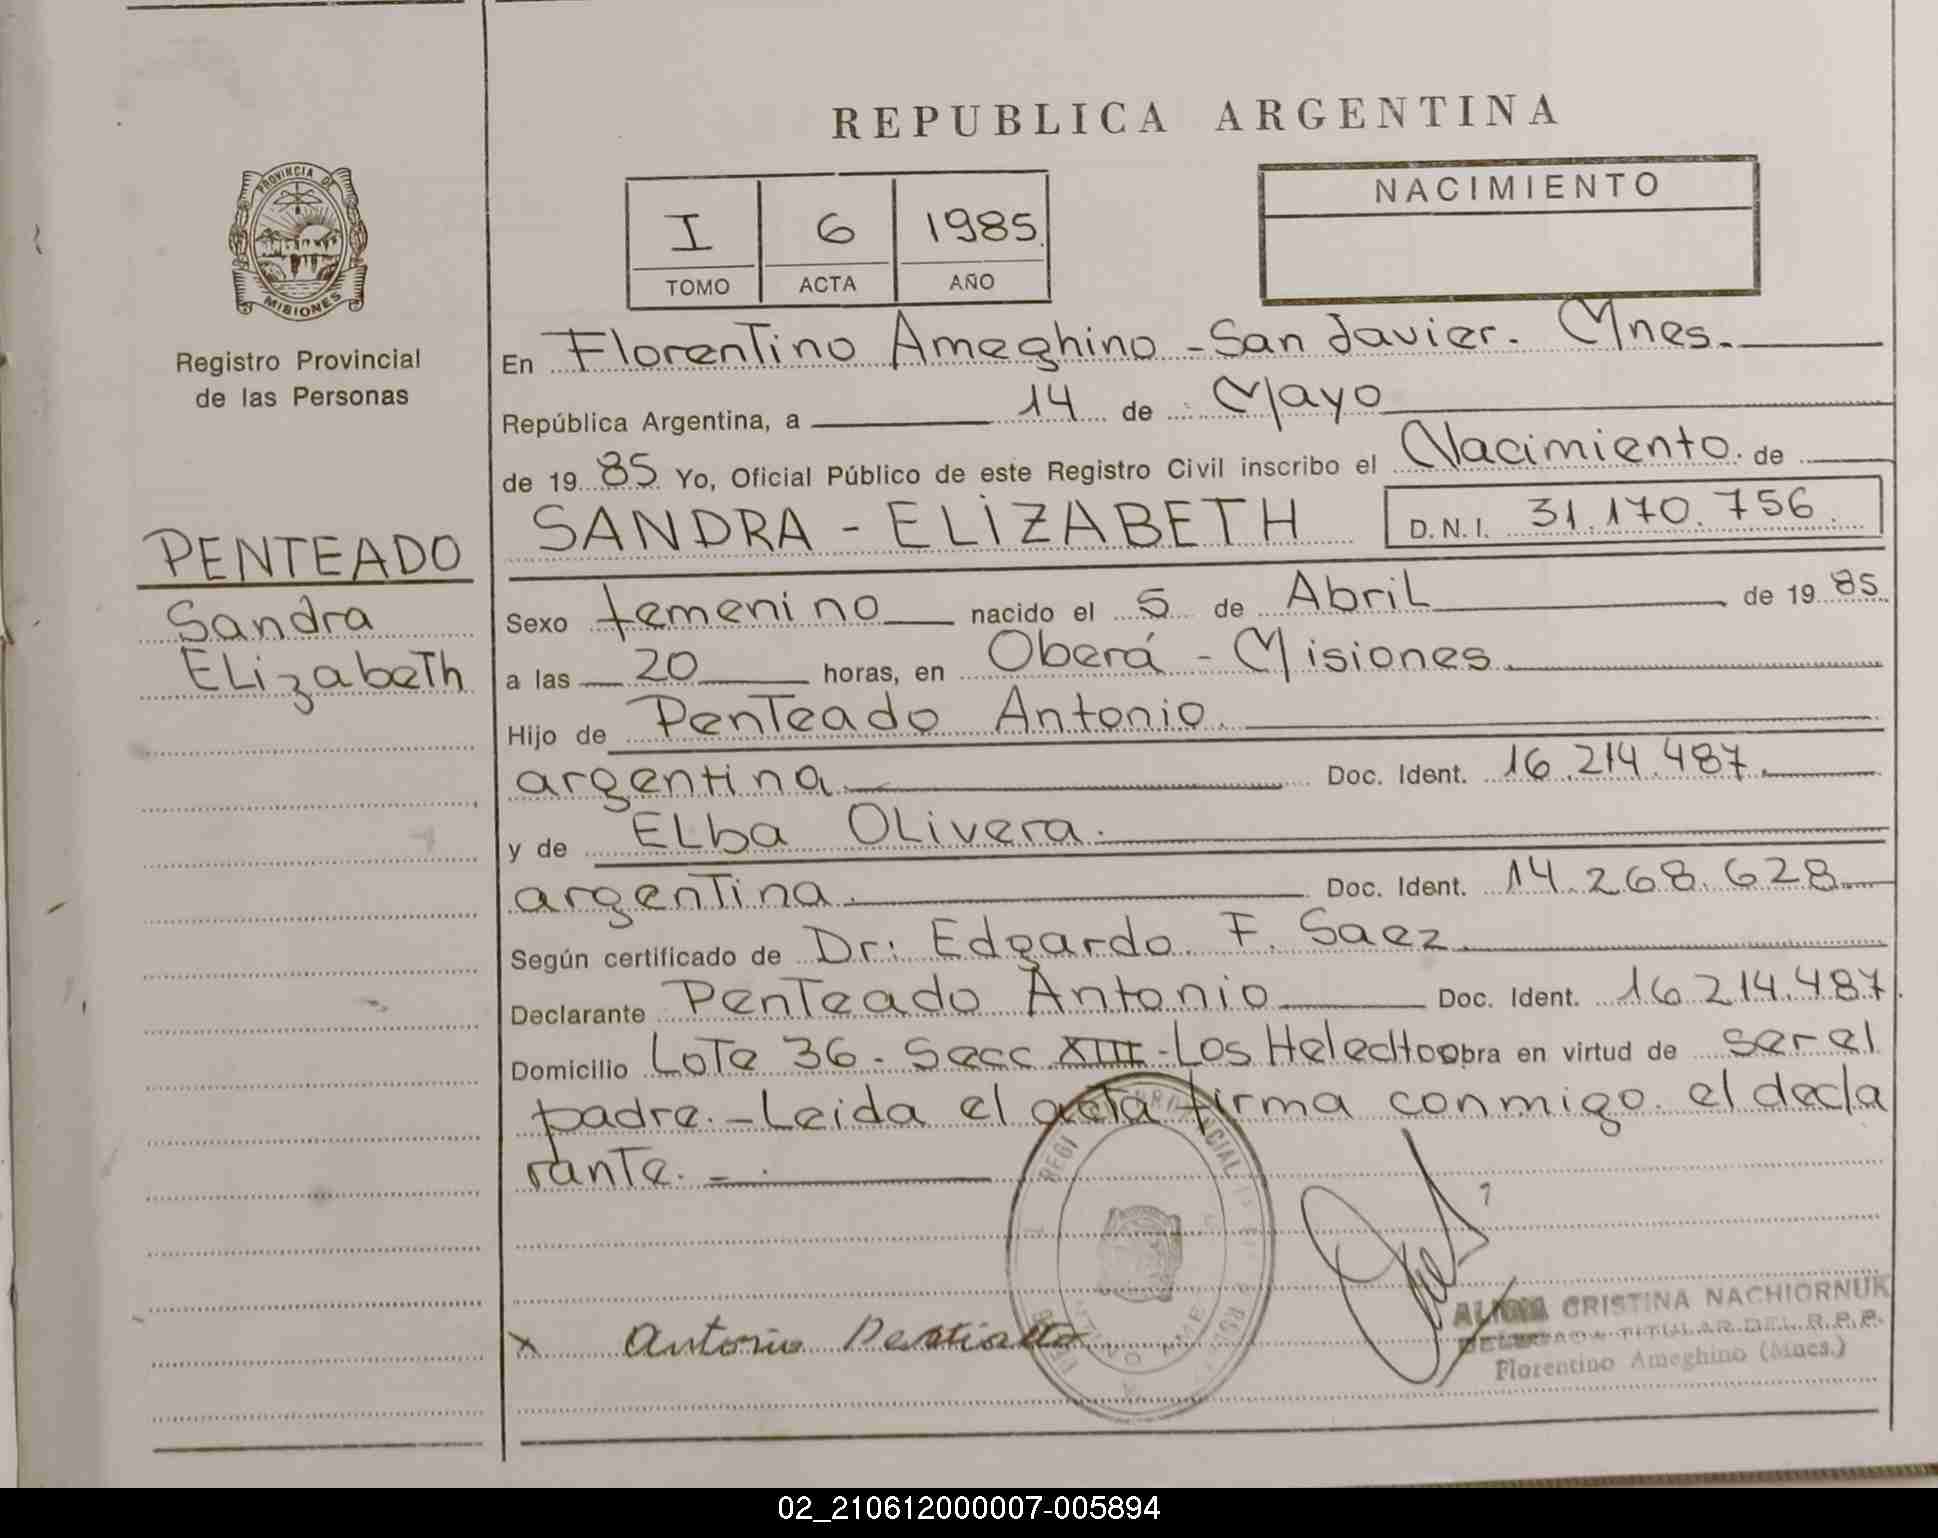 REPUBLICA ARGENTINA
PROVINCIA DE
MISIONES
Registro Provincial
de las Personas
I 6 1985
TOMO ACTA AÑO
NACIMIENTO
En Florentino Ameghino - San Javier. Mnes.
República Argentina, a 14 de Mayo
de 1985 Yo, Oficial Público de este Registro Civil inscribo el Nacimiento. de
SANDRA - ELIZABETH D.N.I. 31.170.756.
PENTEADO
Sandra
Elizabeth
Sexo femenino nacido el 5 de Abril de 1985
a las 20 horas, en Oberá - Misiones
Hijo de Penteado Antonio.
argentina. Doc. Ident. 16.214.487.
y de Elba Olivera.
argentina. Doc. Ident. 14.268.628.
Según certificado de Dr: Edgardo F. Saez
Declarante Penteado Antonio Doc. Ident. 16214.487
Domicilio Lote 36 - Secc XIII - Los Helechos obra en virtud de ser el
padre. - Leida el acta firma conmigo el decla
rante. -
REGI PROVINCIAL
x Antonio
CRISTINA NACHIORNUK
TITULAR DEL R.P.P.
Florentino Ameghino (Mnes.)
02_210612000007-005894